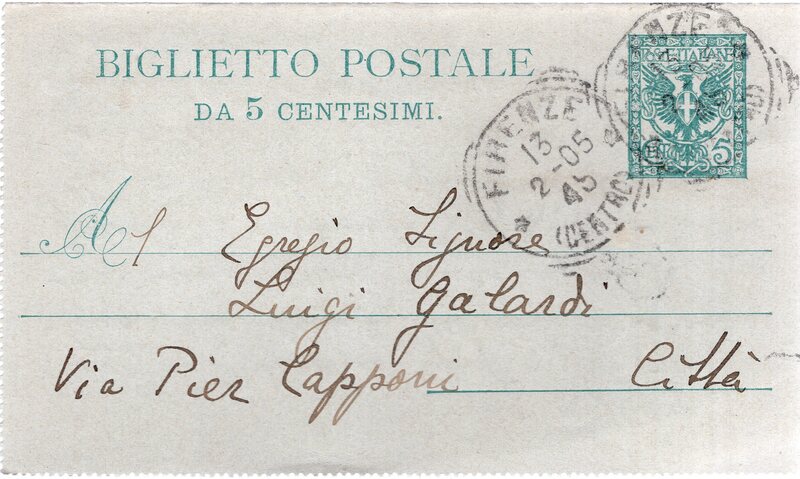 BIGLIETTO POSTALE
DA 5 CENTESIMI.
POSTE ITALIANE
5
FIRENZE
FIRENZE
13
2-05
(CENTRO)
Al Egregio Signore
Luigi Galardi
Via Pier Capponi Città